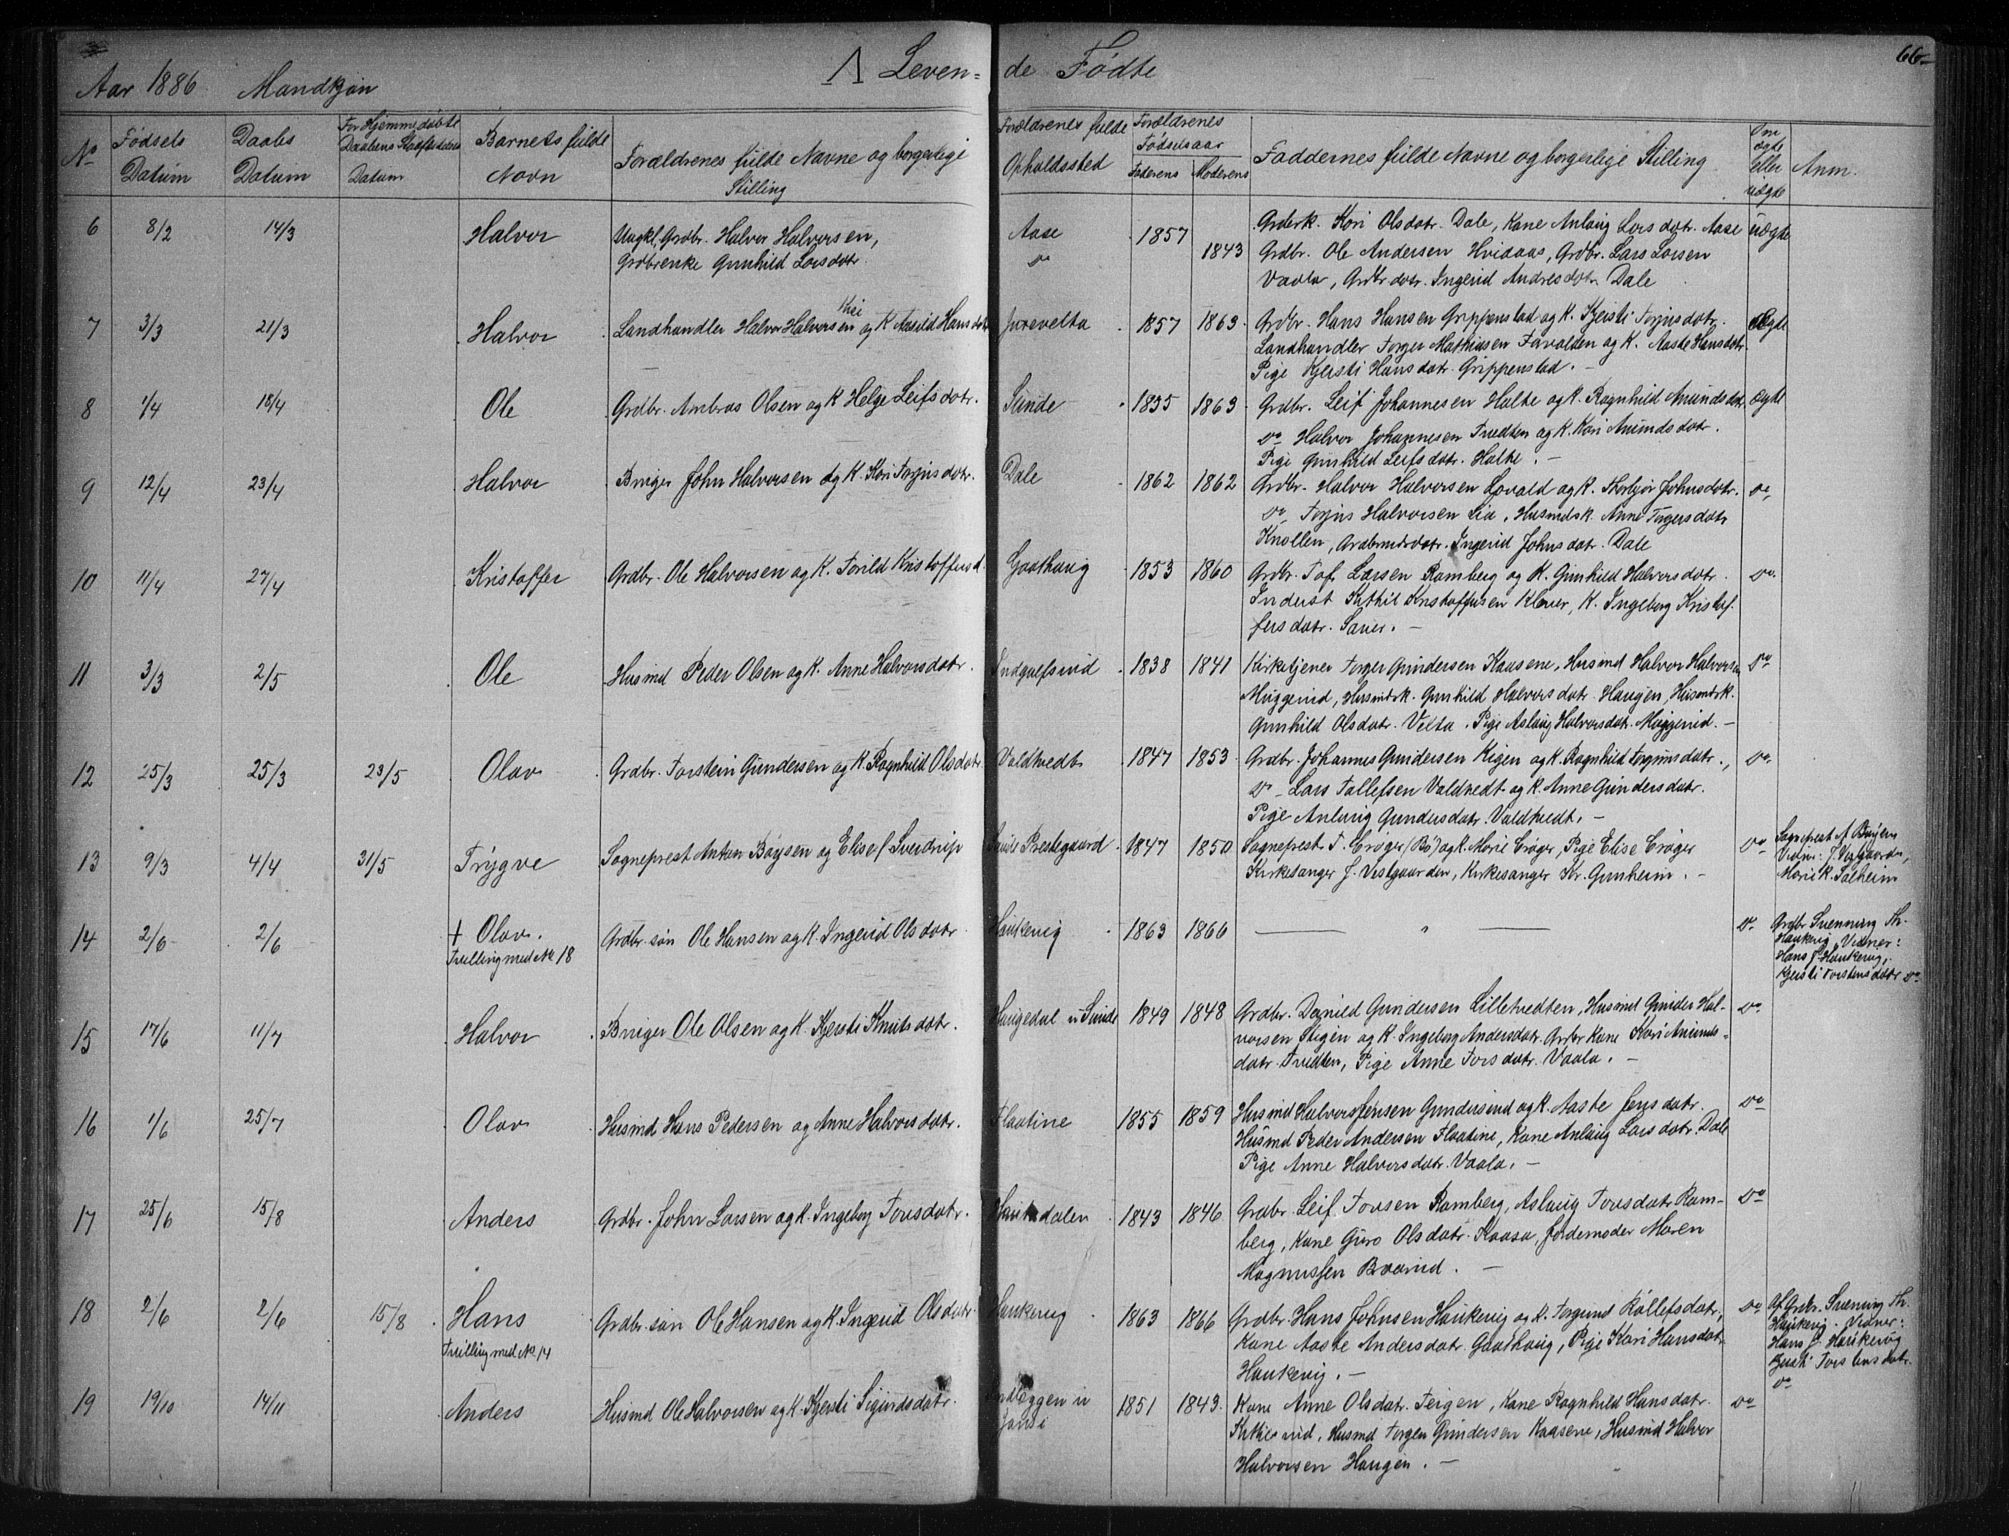 Aar 1886 Mandkjøn
A Leven= de Fødte
66
No
Fødsels Datum
Daabs Datum
For Hjemmedøbte Daabens Datum
Barnets fulde Navn
Forældrenes fulde Navne og borgerlige Stilling
Forældrenes fulde Opholdssted
Forældrenes Fødselsaar
Faderens Moderens
Faddernes fulde Navne og borgerlige Stilling
Om ægte eller uægte
Anm.
6 8/2 14/3 Halvor
Ungkl. Grdbr. Halvor Halvorsen,
Grdbrenke Gunhild Larsdatr.
Aase
do
1857
1843
Grderk. Kari Olsdatr. Dale, Kone Anlaug Larsdatr. Aase uægte
Grdbr. Ole Andersen Hvidaas, Grdbr. Lars Larsen
Vaala, Grdbr dotr. Ingerid Andresdotr. Dale
7 3/3 21/3 Halvor
Landhandler Halvor Halvorsen og K. Aasild Hansdotr
1857 1863
Grdbr. Hans Hansen Grippenstad og K. Kjersti Torjusdotr. Ægte
Landhandler Torger Mathiasen Farvolden og K. Aaste Hansdotr.
Pige Kjersti Hansdotr. Grippenstad. –
8 1/4 18/4 Ole
Grdbr. Ambros Olsen og K. Helge Leifsdotr. Sunde 1835 1863
Grdbr. Leif Johannesen Halte og K. Ragnhild Amundsdotr. ægte
do Halvor Johannesen Tvedten og K. Kari Amundsdotr.
Pige Gunhild Leifsdotr. Halte. –
9 12/4 23/4 Halvor
Bruger John Halvorsen og K. Kari Torjusdotr. Dale 1862 1862
Grdbr. Halvor Halvorsen Lovald og K. Thorbjør Johnsdotr. do
do Torjus Halvorsen Lia, Husmdsk. Anne Torgersdotr
Knollen, Ingerid Johnsdotr. Dale
10 11/4 27/4 Kristoffer
Grdbr. Ole Halvorsen og K. Torild Kristoffersd. Gaathaug 1853 1860
Grdbr. Tof. Larsen Ramberg og K. Gunhild Halvorsdotr. do
Inderst Kittil Kristoffersen Klever, K. Ingeborg Kristof-
fersdotr. –
11 3/3 2/5 Ole
Husmd Peder Olsen og K. Anne Halvorsdotr. 1838 1841
Kirketjener Torger Gundersen Kaasene, Husmd Halvor Halvorsen do
Muggerud, Husmdsk. Gunhild Halvorsdotr. Haugen, Husmdsk.
Gunhild Olsdotr. Velta. Pige Aslaug Halvorsdotr. Muggerud. –
12 25/3 25/3 23/5 Olav
Grdbr. Torstein Gundersen og K. Ragnhild Olsdotr Valdkvedt 1847 1853
Grdbr. Johannes Gundersen Kigen og K. Ragnhild Torgrimsdotr., do
do – Lars Tallefsen Valdkvedt og K. Anne Gundersdotr.
Pige Anlaug Gundersdotr. Valdkvedt. –
13 9/3 4/4 31/5 Trygve
Sogneprest Anton Bøysen og Elise f. Sverdrup Prestegaard 1847 1850
Sogneprest T. Crøger (Bø) og K. Marie Crøger, Pige Elise Crøger do
Kirkesanger J. Vestgaarden, Kirkesanger Kr. Gunheim. –
Sogneprest A. Bøysen
Vidne: J. Vestgaarden,
Marie K. Solheim
14 2/6 2/6 + Olav.
Tvilling med No 18
Grdbr. søn Ole Hansen og K. Ingerid Olsdotr. Haukerig 1863 1866 — " — do
Grdbr Svenning Th.
Haukerig. Vidner:
Hans J. Haukerig,
Kjersti Torstensdotr. do
15 17/6 11/7 Halvor
Bruger Ole Olsen og K. Kjersti Knutsdotr. Haugedal u Sunde 1849 1848
Grdbr. Dagnild Gundersen Lilletvedten, Husmd Gunder Hal- do
vorsen Stigen og K. Ingeborg Andersdotr. Grdbr Kone Kari Amunds-
dotr. Tvedten, Pige Anne Torsdotr. Vaala. –
16 1/6 25/7 Olav
Husmd Hans Pedersen og Anne Halvorsdotr. Flaatine 1855 1859
Husmd Halvor Jensen Gundersrud og K. Aaste Jensdotr. do
Husmd Peder Andersen Flaatine, Kone Anlaug Larsdotr. Dale
Pige Anne Halvorsdotr. Vaala. –
17 25/6 15/8 Anders
Grdbr. John Larsen og K. Ingeborg Torsdotr. 1843 1846
Grdbr. Leif Torsen Ramberg, Aslaug Torsdotr. Ram- do
berg, Kone Guro Olsdotr. Kaasa, Jordemoder Maren
Magnussen. –
18 2/6 2/6 15/8 Hans
Tvilling med No 14
Grdbr. søn Ole Hansen og K. Ingerid Olsdotr. Haukerig 1863 1866
Grdbr. Hans Johnsen Haukerig og K. Torgund Rollefsdotr, do
Kone Aaste Andersdotr. Gaathaug, Pige Kari Hansdotr.
Haukerig. –
Af Grdbr. Svenning Th.
Haukerig. Vidner:
Hans J. Haukerig
Kjersti Torstensdotr.
do
19 19/10 14/11 Anders
Husmd Ole Halvorsen og K. Kjersti Sigurdsdotr. 1851 1843
Kone Anne Olsdotr. Teigen, Kone Ragnhild Hansdotr. do
Kittilsrud, Husmd Torger Gundersen Kaasene, Husmd Halvor
Halvorsen Haugen. –